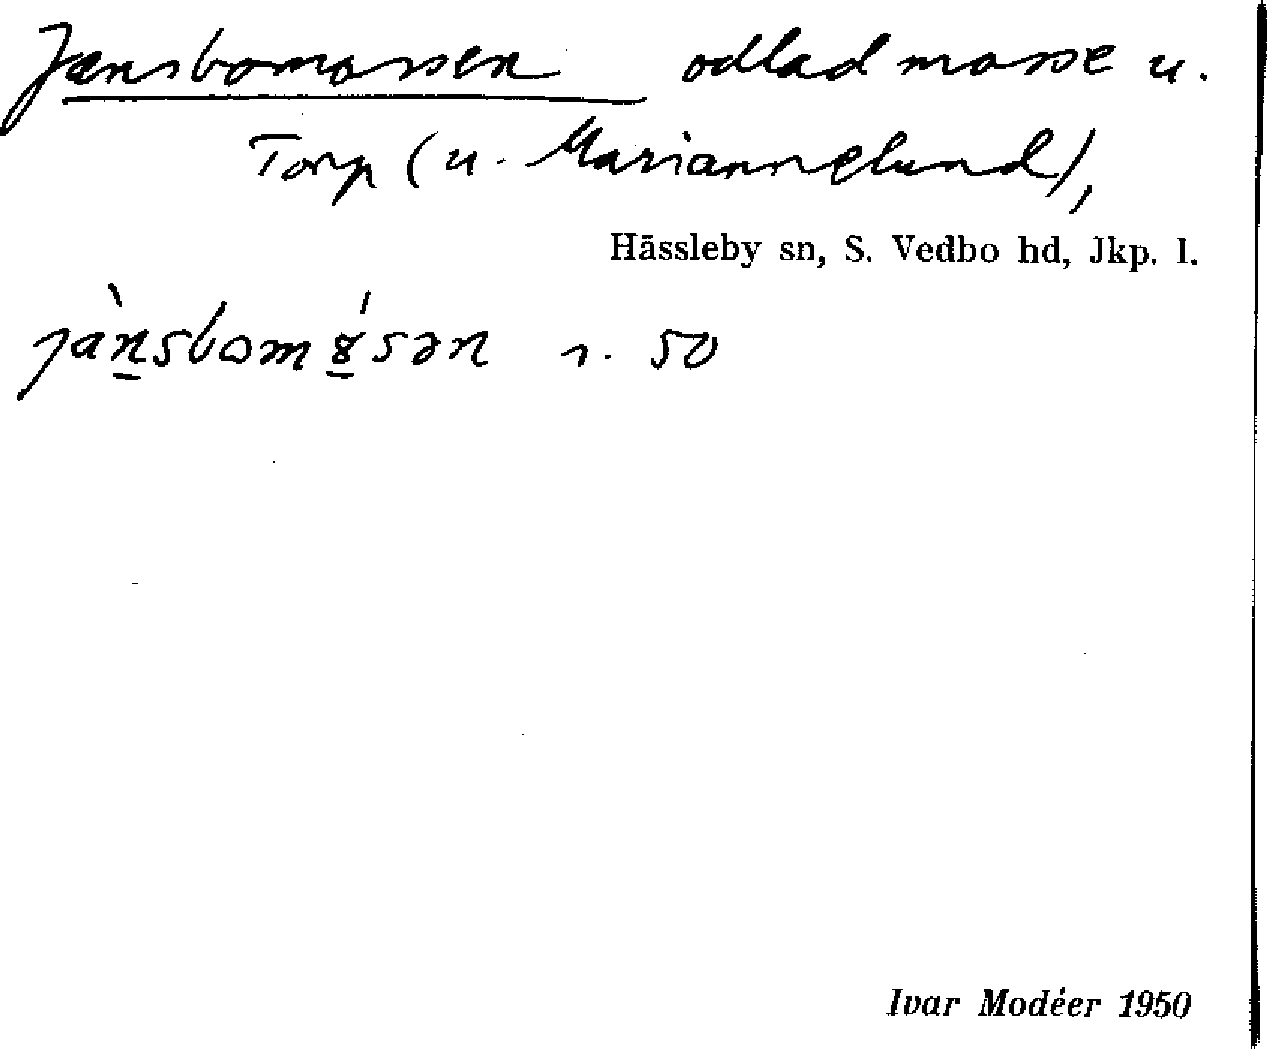 Jansbomossen odlad mosse u.
Torp (u. Mariannelund),
Hässleby sn, S. Vedbo hd, Jkp. l.
jànsbomɞ́sən s. 50
Ivar Modéer 1950